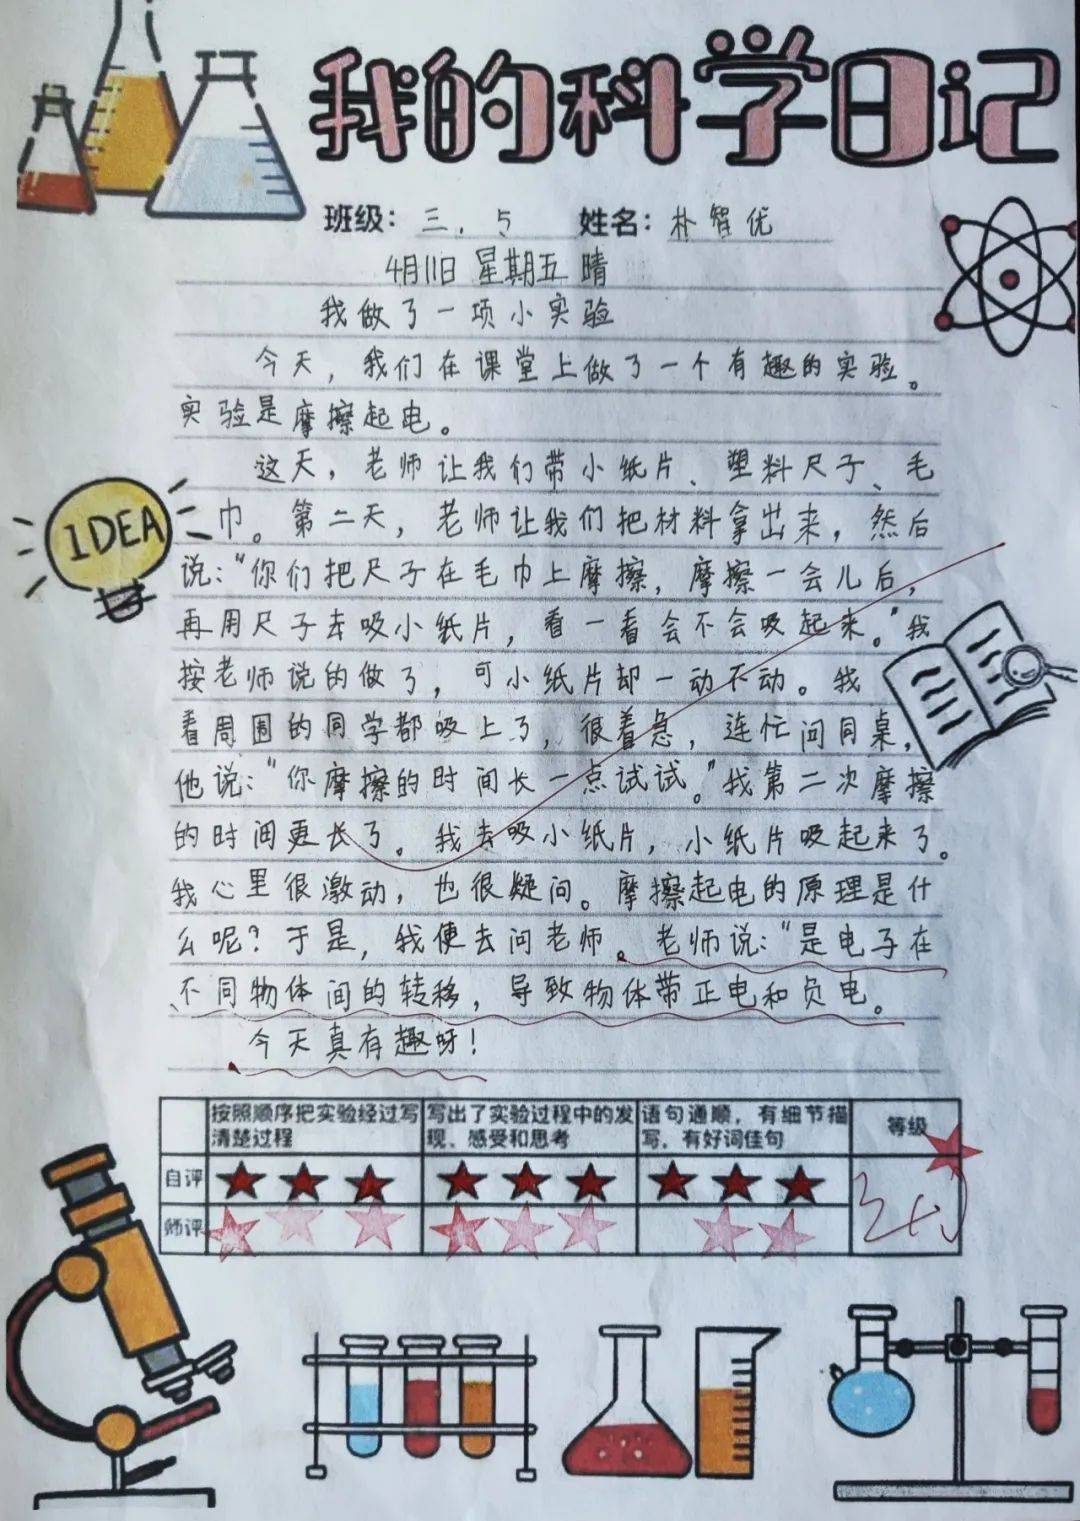 我的科学日记
班级：三.5 姓名：朴智优
4月11日 星期五 晴
我做了一项小实验
今天，我们在课堂上做了一个有趣的实验。
实验是摩擦起电。
这天，老师让我们带小纸片、塑料尺子、毛
巾。第二天，老师让我们把材料拿出来，然后
说：“你们把尺子在毛巾上摩擦，摩擦一会儿后，
再用尺子去吸小纸片，看一看会不会吸起来。”我
按老师说的做了，可小纸片却一动不动。我
看周围的同学都吸上了，很着急，连忙问同桌，
他说：“你摩擦的时间长一点试试。”我第二次摩擦
的时间更长了。我去吸小纸片，小纸片吸起来了。
我心里很激动，也很疑问。摩擦起电的原理是什
么呢？于是，我便去问老师。老师说：“是电子在
不同物体间的转移，导致物体带正电和负电。
今天真有趣呀！
IDEA
按照顺序把实验经过写清楚过程
写出了实验过程中的发现、感受和思考
语句通顺，有细节描写，有好词佳句
等级
自评
师评